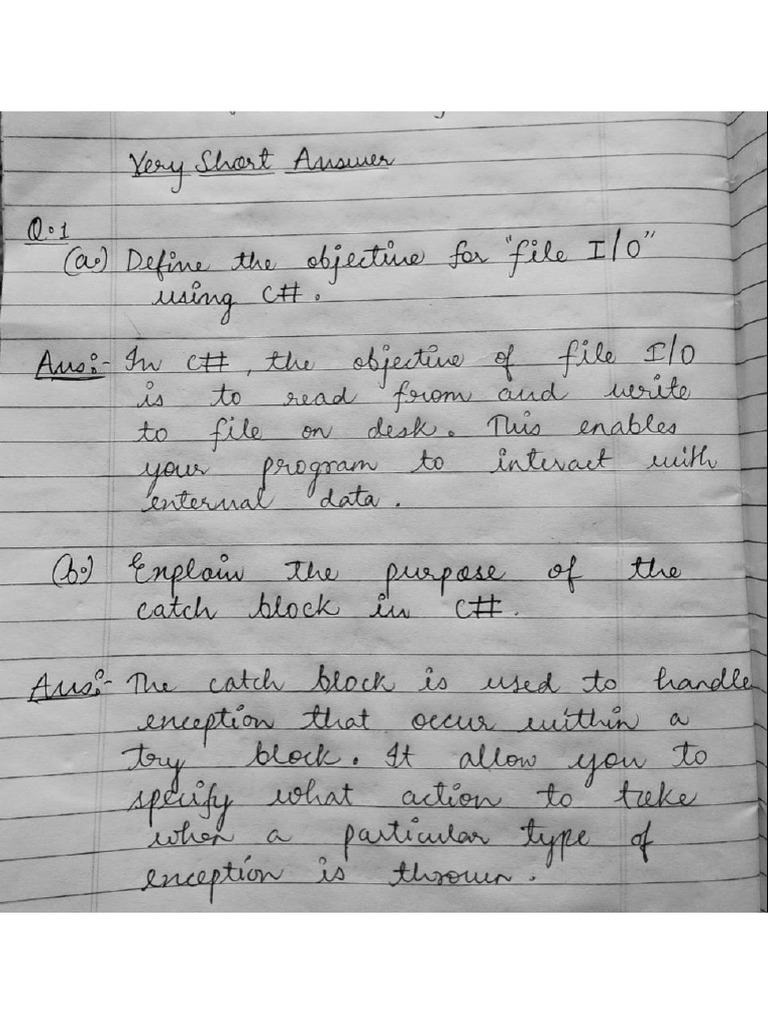 Very Short Answer
Q.1
(a.) Define the objective for "file I/O"
using C#.
Ans:- In C#, the objective of file I/O
is to read from and write
to file on desk. This enables
your program to interact with
enternal data.
(b.) Explain the purpose of the
catch block in C#.
Ans:- The catch block is used to handle
enception that occur within a
try block. It allow you to
specify what action to take
when a particular type of
enception is thrown.